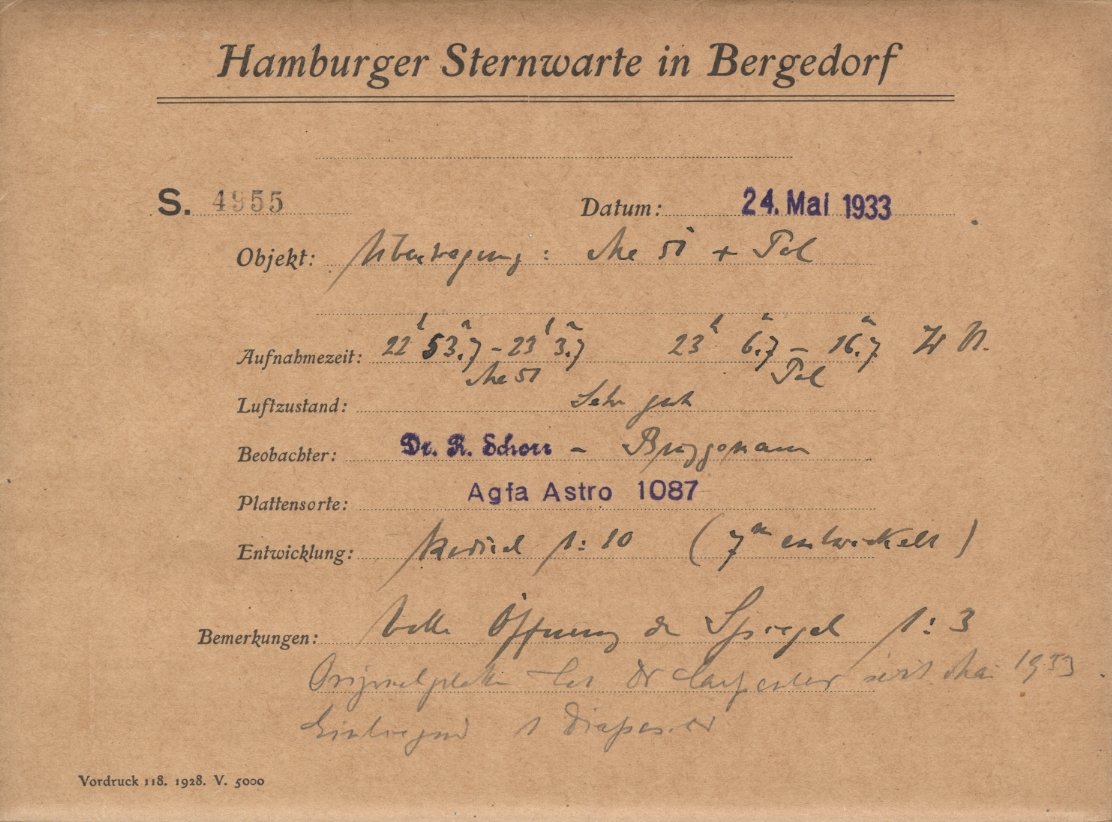 Hamburger Sternwarte in Bergedorf
S. 4955 Datum: 24. Mai 1933
Objekt: Übertragung: Me 51 + Pol
Aufnahmezeit: 22h 53m.7 – 23h 3m.7 23h 6m.7 – 16m.7
Me 51 Pol
Luftzustand: Sehr gut
Beobachter: Dr. R. Schorr – Brüggemann
Plattensorte: Agfa Astro 1087
Entwicklung: Rodinal 1:10 (7m entwickelt)
Bemerkungen: Volle Öffnung des Spiegel 1:3
Originalplatte Dr seit Mai 1933
1 Diapositiv
Vordruck 118. 1928. V. 5000